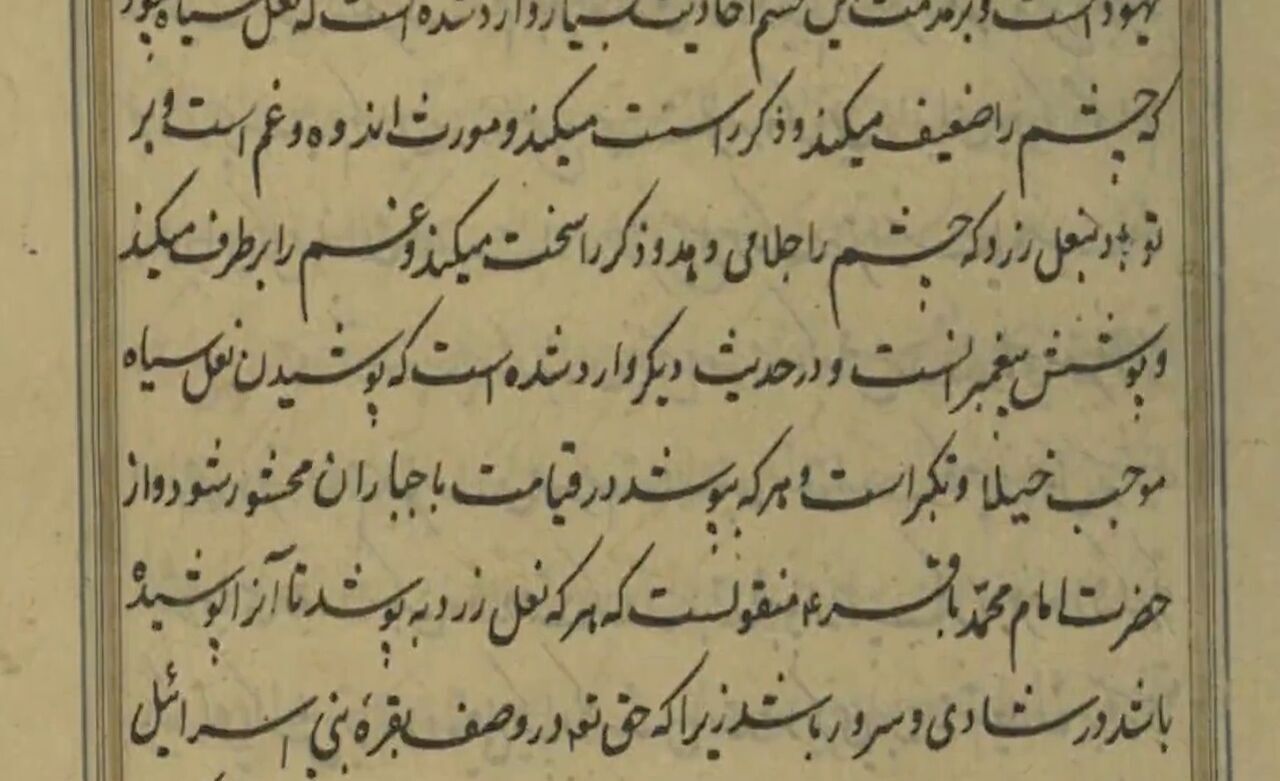 یهود است و بر مذمت این قسم احادیث بسیار وارد شده است که نعل سیاه مپوش
که چشم را ضعیف میکند و ذکر را سست میکند و مورث اندوه و غم است و بر
تو باد بنعل زرد که چشم را جلا می دهد و ذکر را سخت میکند و غم را برطرف میکند
و پوشش پیغمبرانست و در حدیث دیکر وارد شده است که پوشیدن نعل سیاه
موجب خیلا و تکبر است و هر که بپوشد در قیامت با جباران محشور شود و از
حضرت امام محمد باقر ع منقولست که هر که نعل زرد به پوشد تا آنرا پوشیده
باشد در شادی و سرور باشد زیرا که حق تع در وصف بقرهٔ بنی اسرائیل